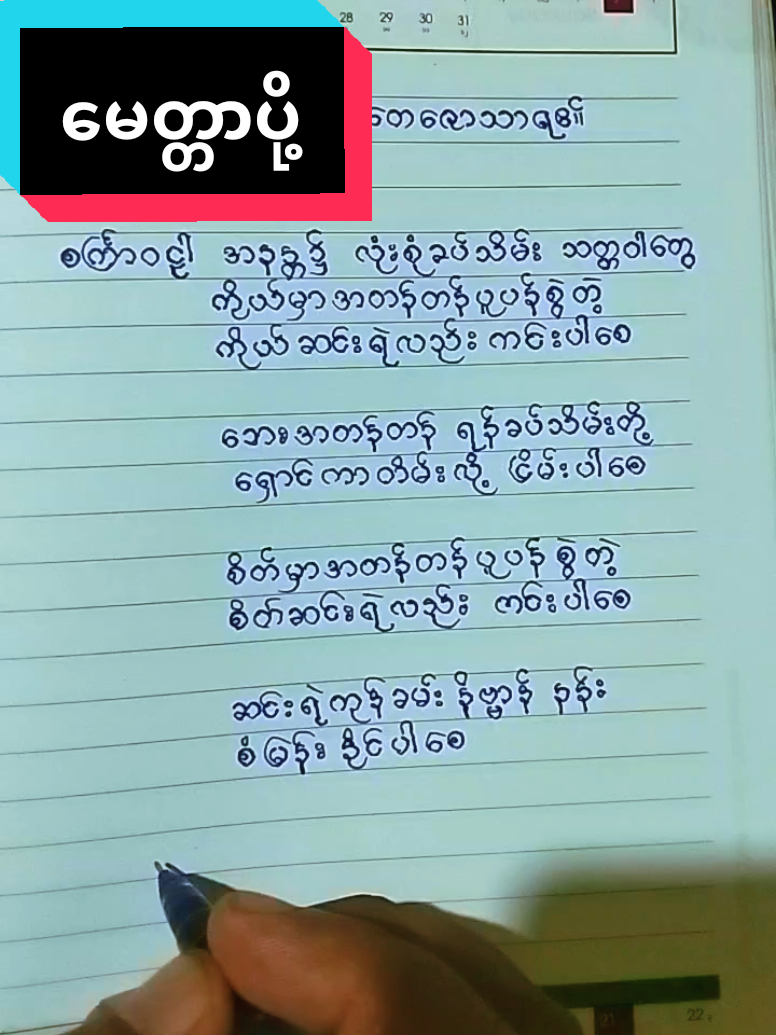 28 29 30 31
မေတ္တာပို့
တေဇောသာရ၏
စကြာဝဠာ အနန္တ၌ လုံးစုံခပ်သိမ်း သတ္တဝါတွေ
ကိုယ်မှာအတန်တန်ပူပန်စွဲတဲ့
ကိုယ်ဆင်းရဲလည်း ကင်းပါစေ
ဘေးအတန်တန် ရန်ခပ်သိမ်းတို့
ရှောင်ကာတိမ်းလို့ ငြိမ်းပါစေ
စိတ်မှာအတန်တန်ပူပန်စွဲတဲ့
စိတ်ဆင်းရဲလည်း ကင်းပါစေ
ဆင်းရဲကုန်ခမ်း နိဗ္ဗာန် နန်း
စံမြန်းနိုင်ပါစေ
21 22